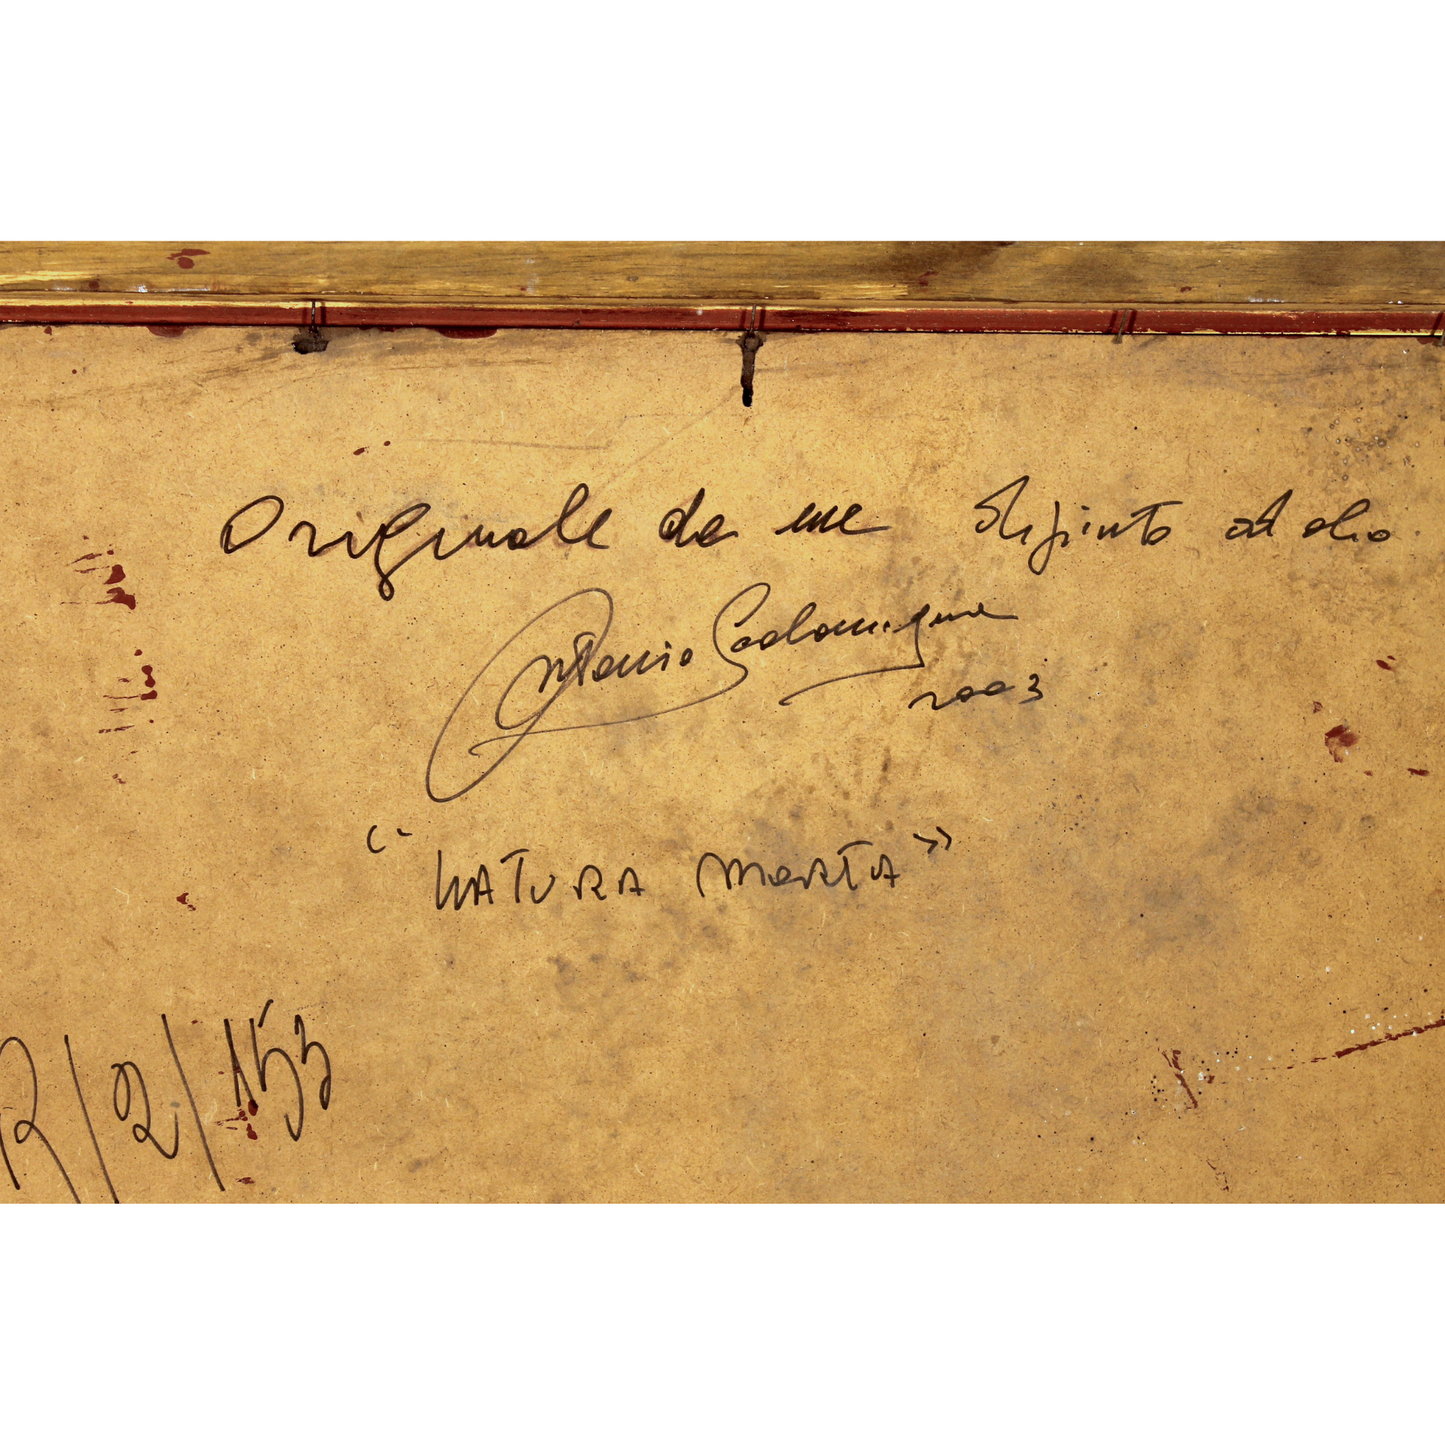 Originale da me dipinto ad olio
Antonio Sodomigne
2003
“NATURA MORTA”
R/2/153